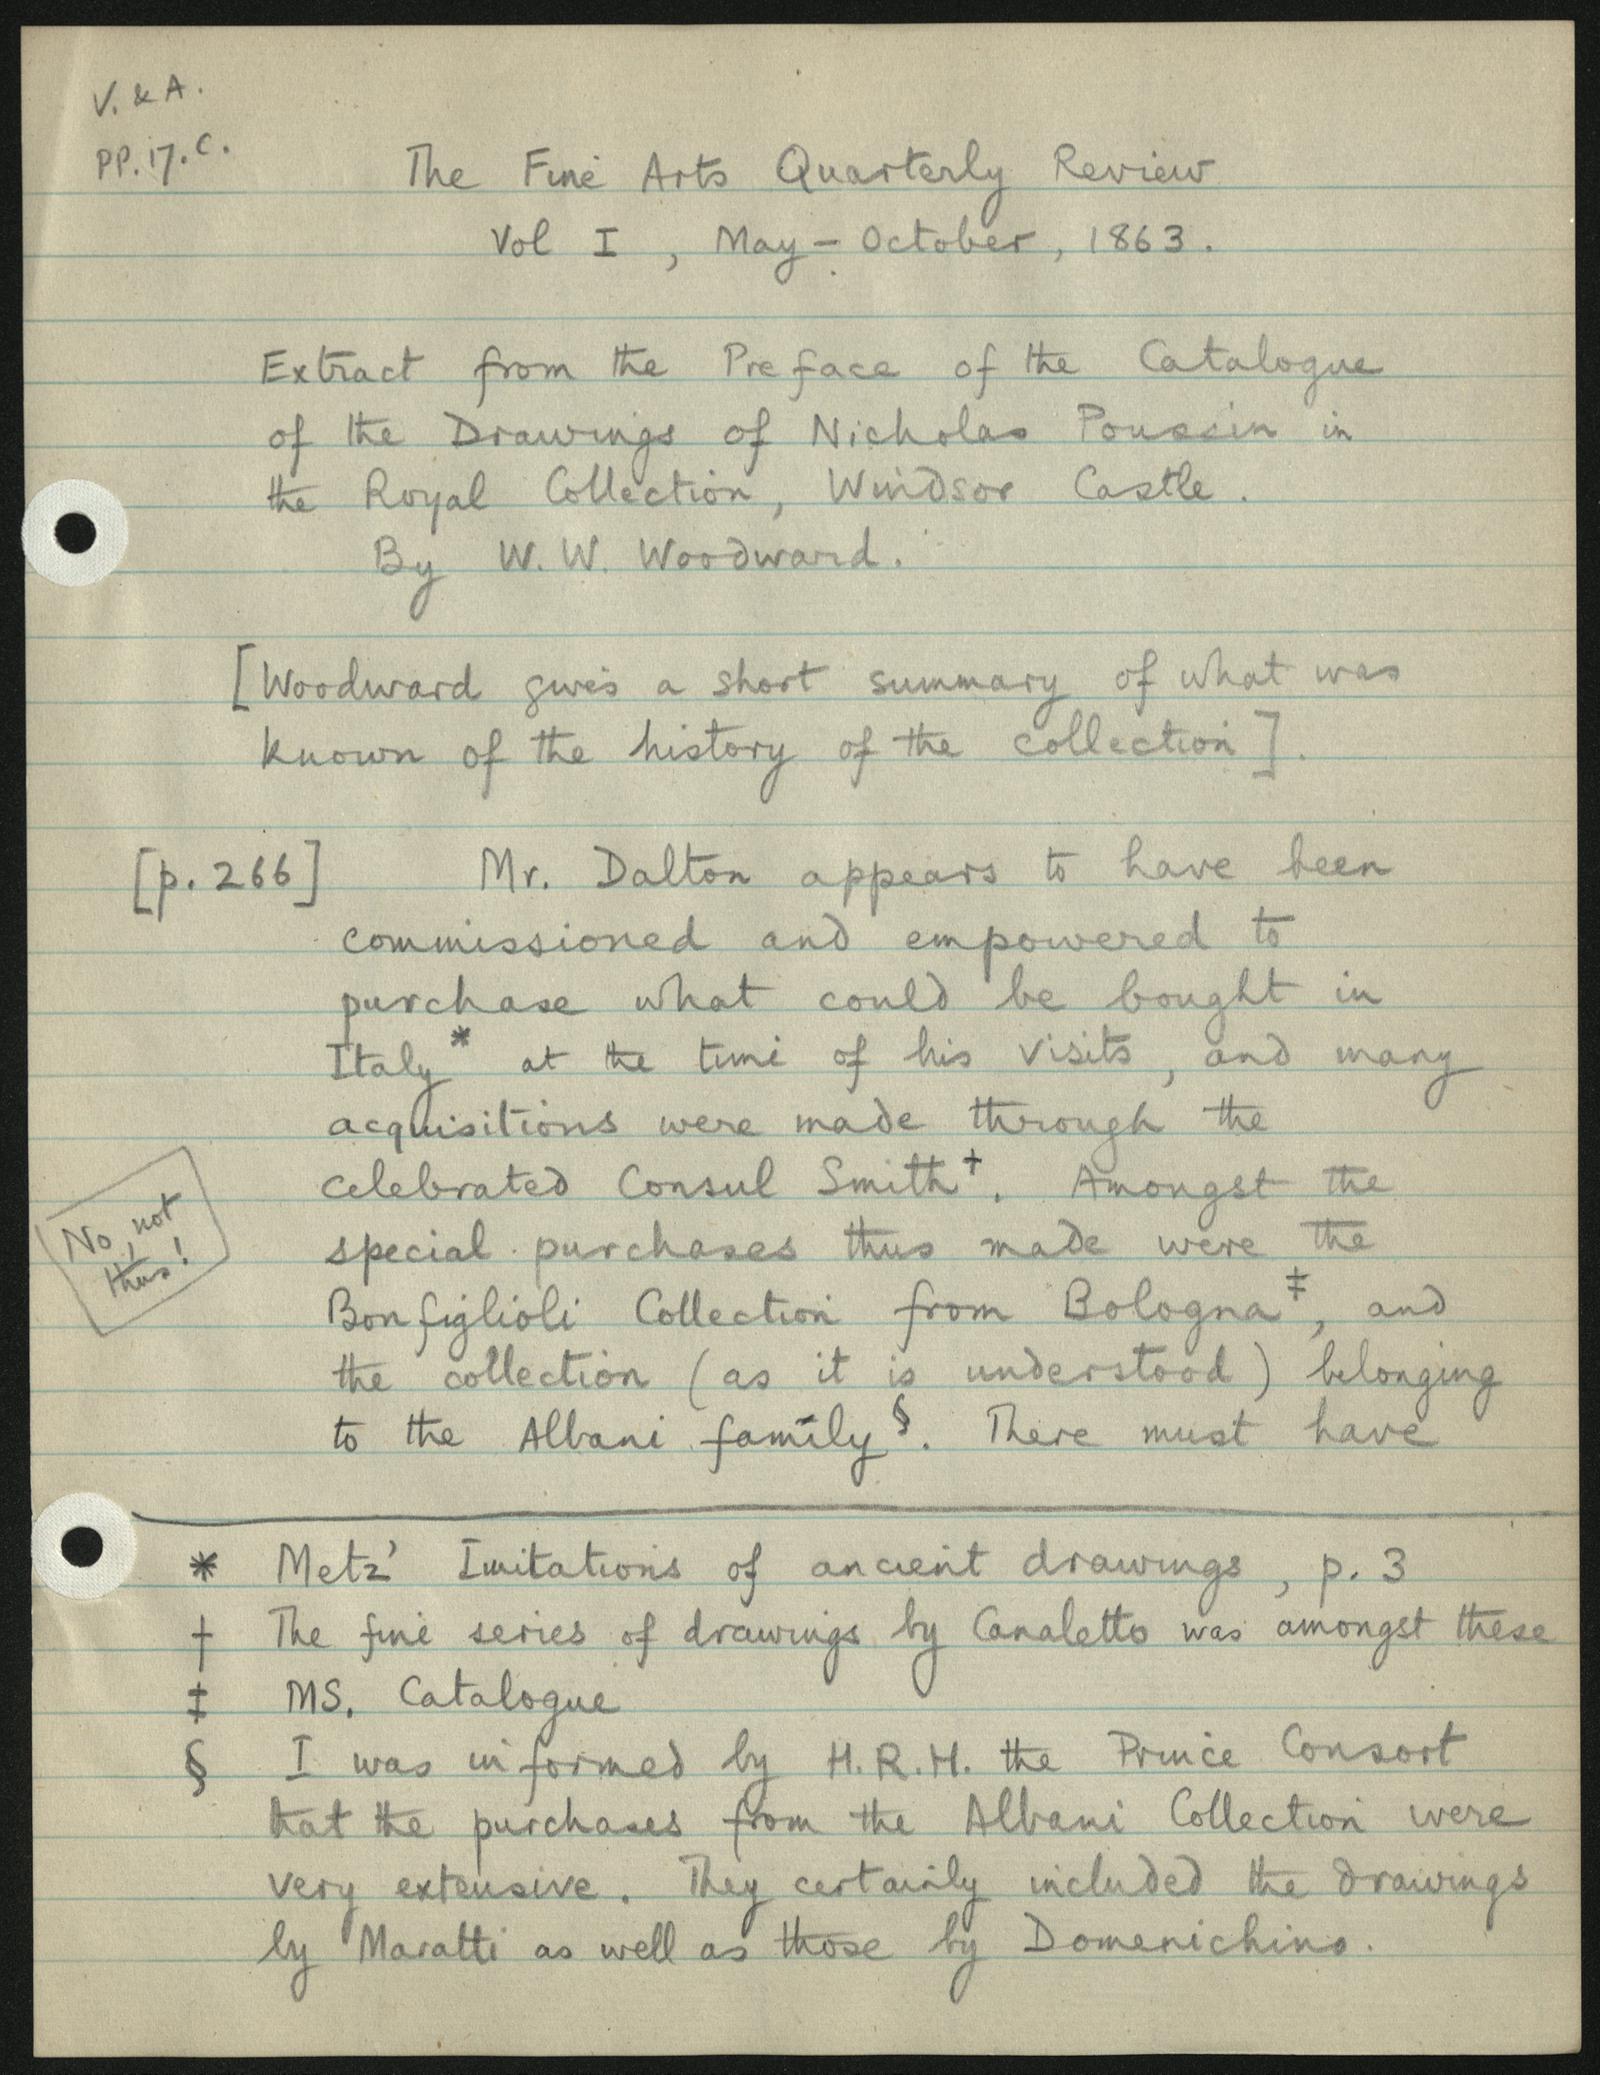 V. & A.
PP. 17. C.
The Fine Arts Quarterly Review
Vol I , May – October, 1863.
Extract from the Preface of the Catalogue
of the Drawings of Nicholas Poussin in
the Royal Collection, Windsor Castle.
By W. W. Woodward.
[Woodward gives a short summary of what was
known of the history of the collection].
[p. 266] Mr. Dalton appears to have been
commissioned and empowered to
purchase what could be bought in
Italy* at the time of his visits, and many
acquisitions were made through the
celebrated Consul Smith†. Amongst the
special purchases thus made were the
No, not
thus!
Bonfiglioli Collection from Bologna‡, and
the collection (as it is understood) belonging
to the Albani family§. There must have
* Metz' Imitations of ancient drawings, p. 3
† The fine series of drawings by Canaletto was amongst these
‡ MS. Catalogue
§ I was informed by H.R.H. the Prince Consort
that the purchases from the Albani Collection were
very extensive. They certainly included the drawings
by Maratti as well as those by Domenichino.